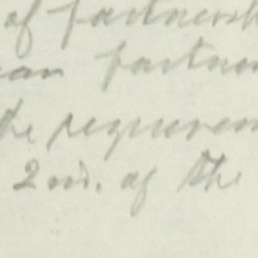 of partnersh
an partner
the requirem
2nd. of the